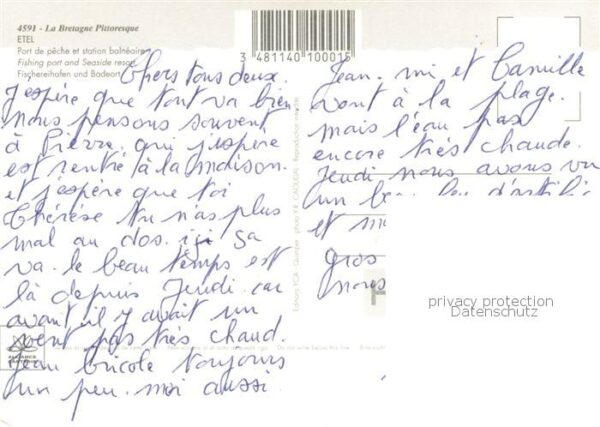 4591 - La Bretagne Pittoresque
ETEL
Port de pêche et station balnéaire
Fishing port and Seaside resort
Fischereihafen und Badeort
3 481140 100015
Chers tous deux.
J'espère que tout va bien
nous pensons souvent
à Pierre. qui j'espère
est rentré à la maison.
et j'espère que toi
Thérèse tu n'as plus
mal au dos. ici sa
va. le beau temps est
là depuis Jeudi. car
avant il y avait un
vent pas très chaud.
Jean bricole toujours
un peu. moi aussi.
Jean. mi et Camille
vont à la plage.
mais l'eau pas
encore très chaude.
Jeudi nous avons vu
un
et
gros
nous
privacy protection
Datenschutz